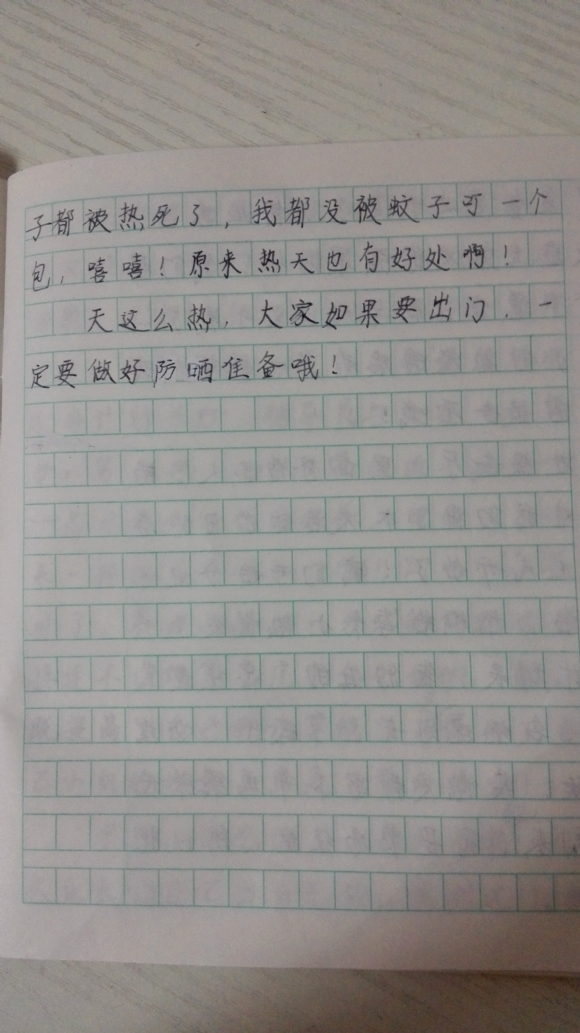 子都被热死了，我都没被蚊子叮一个
包，嘻嘻！原来热天也有好处啊！
天这么热，大家如果要出门，一
定要做好防晒准备哦！